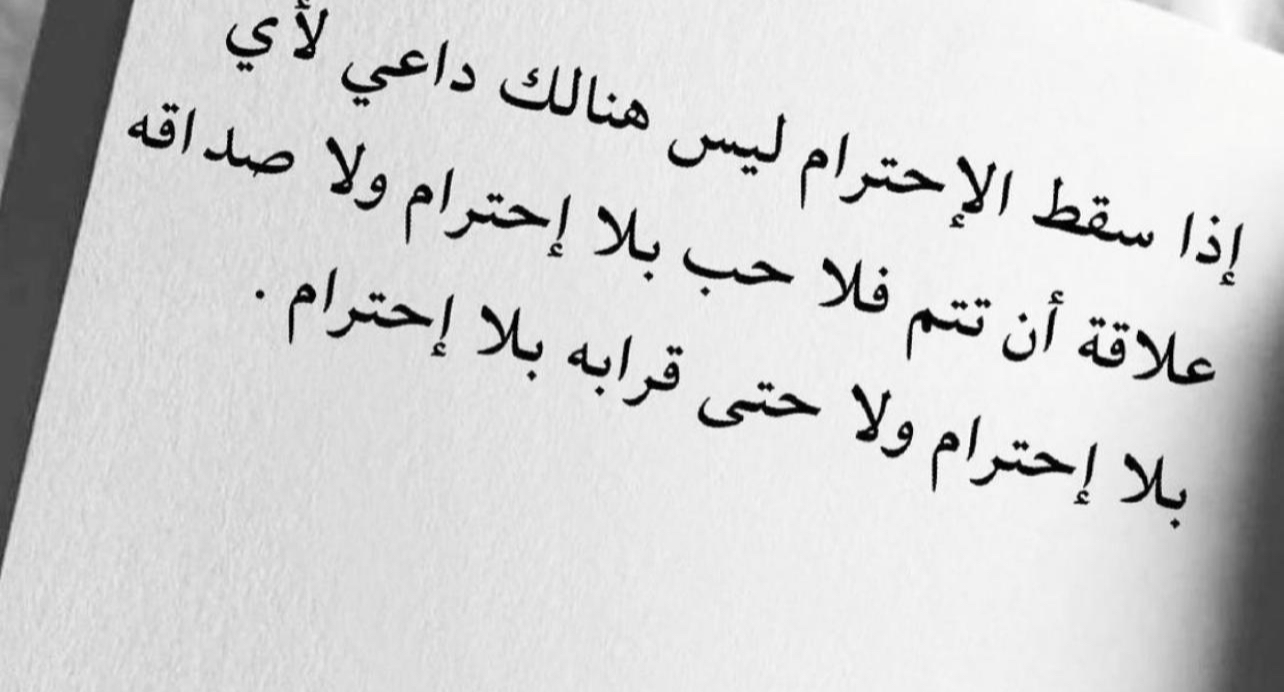 إذا سقط الإحترام ليس هنالك داعي لأي
علاقة أن تتم فلا حب بلا إحترام ولا صداقه
بلا إحترام ولا حتى قرابه بلا إحترام .